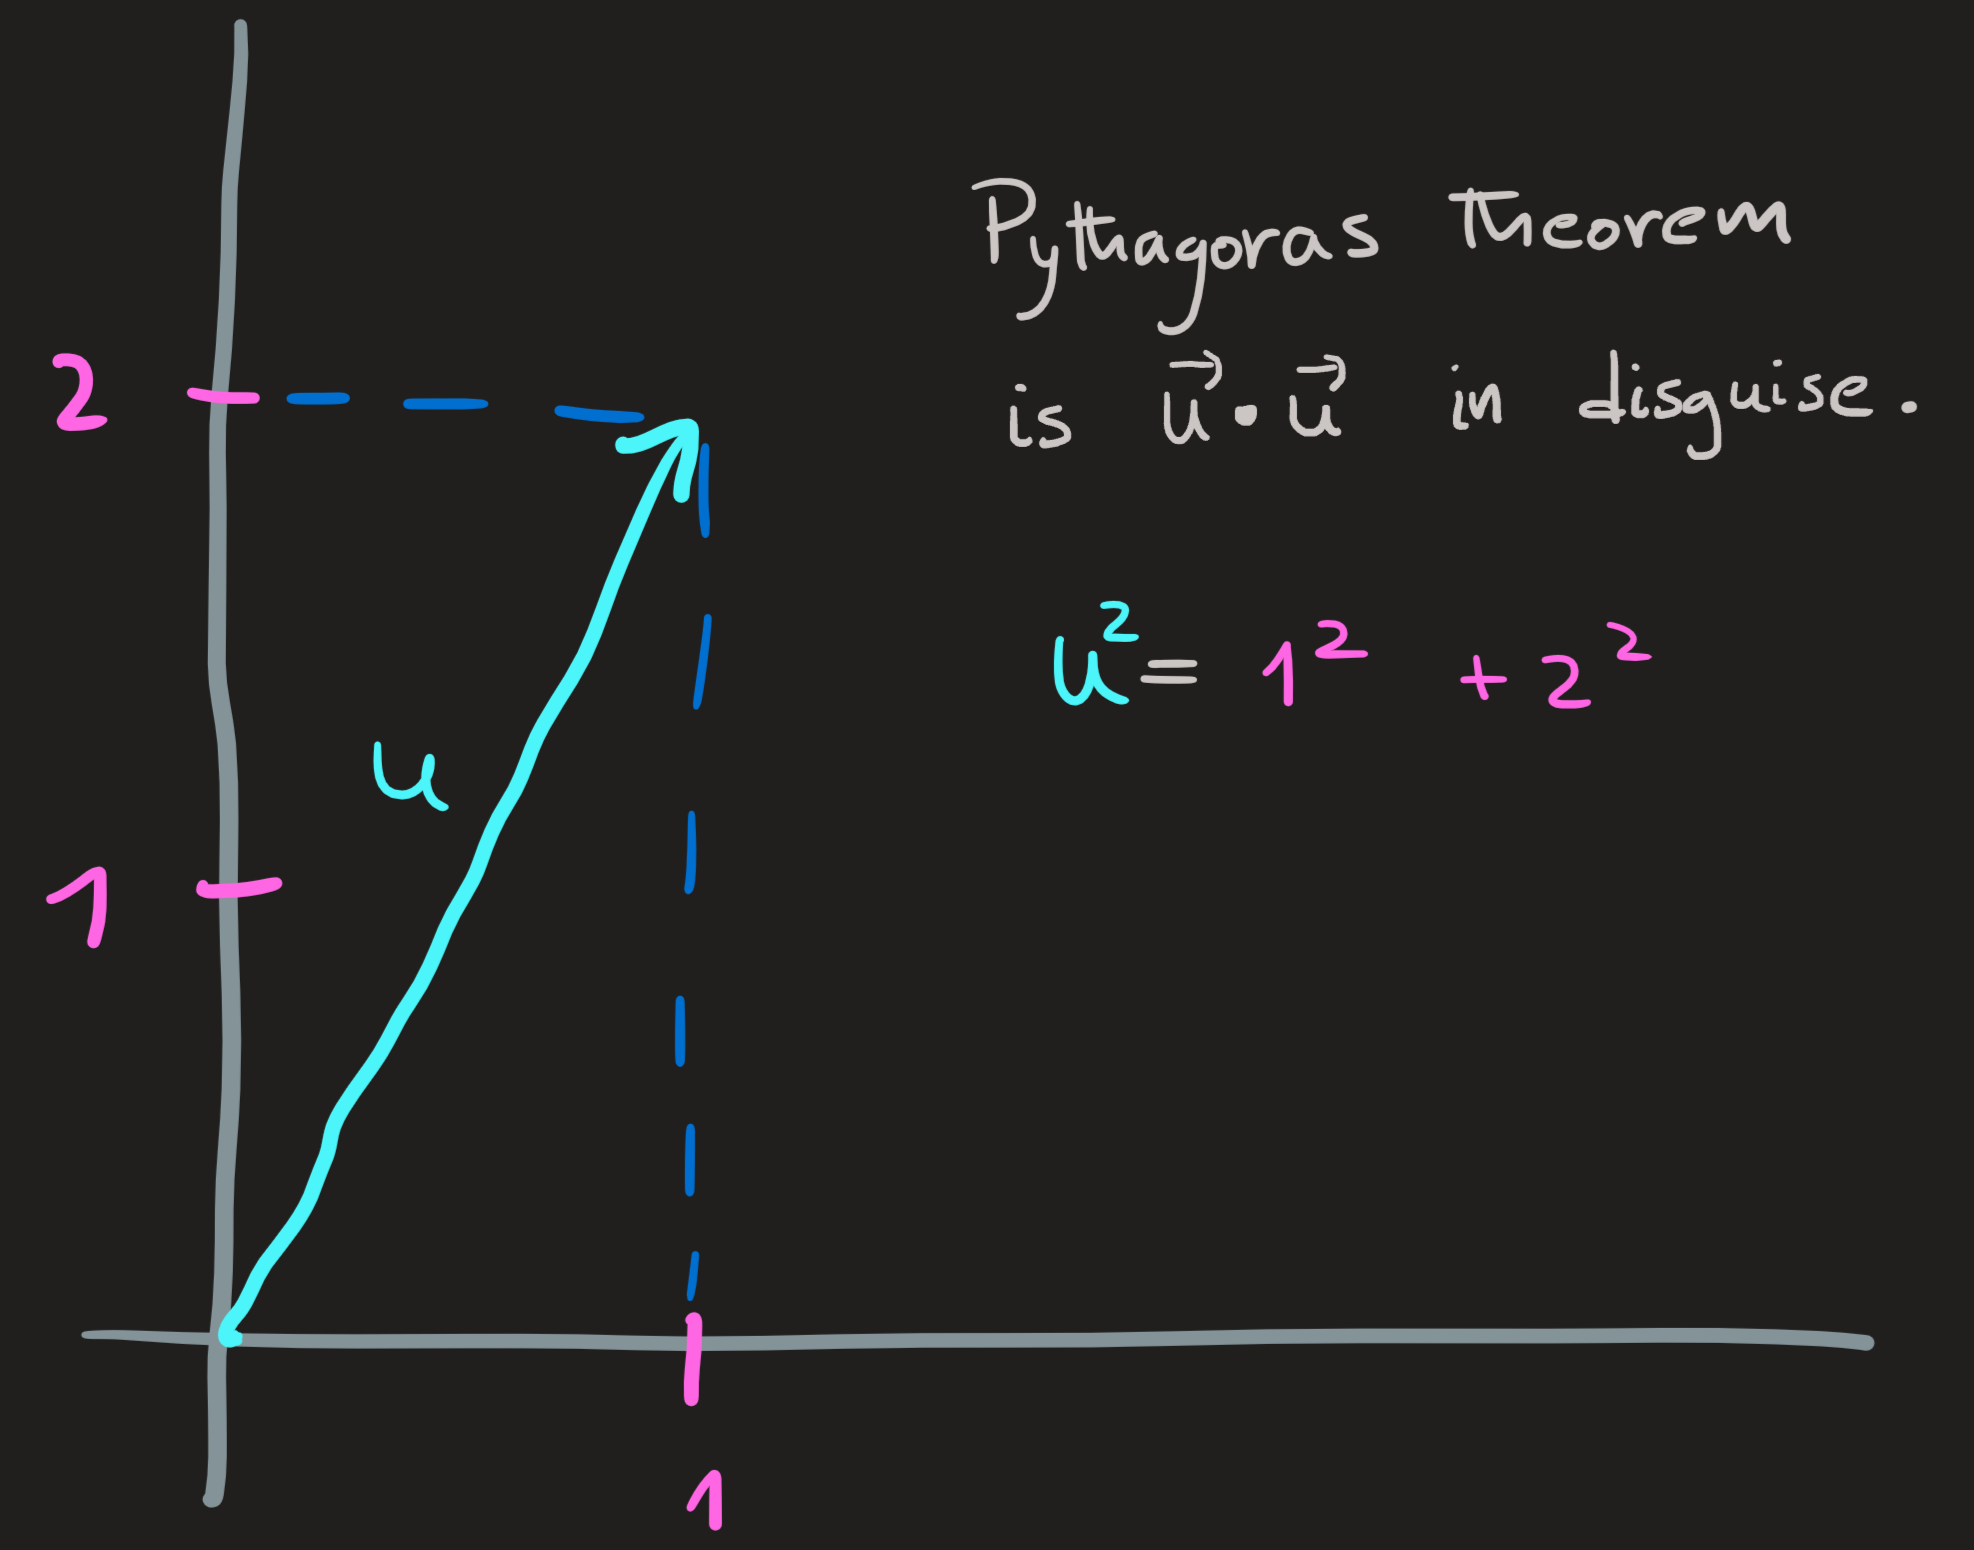 Pythagoras theorem
is u⃗ • u⃗ in disguise.
2
u² = 1² + 2²
u
1
1